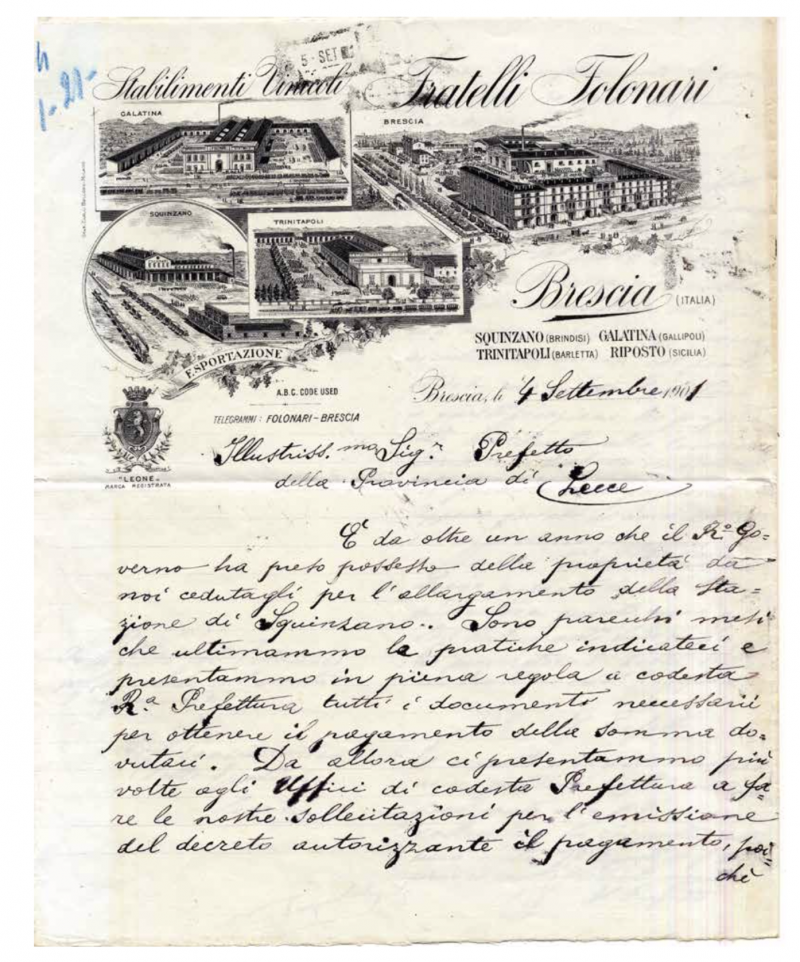 4
1-21-
5-SET
Stabilimenti Vinicoli
Fratelli Folonari
GALATINA
BRESCIA
SQUINZANO
TRINITAPOLI
Brescia (ITALIA)
SQUINZANO (BRINDISI) GALATINA (GALLIPOLI)
TRINITAPOLI (BARLETTA) RIPOSTO (SICILIA)
ESPORTAZIONE
A.B.C. CODE USED
TELEGRAMMI: FOLONARI-BRESCIA
"LEONE"
MARCA REGISTRATA
Brescia, li 4 Settembre 1901
Illustriss.mo Sig.r Prefetto
della Provincia di Lecce
È da oltre un anno che il R.o Go=
verno ha preso possesso della proprietà da
noi cedutagli per l'allargamento della Sta=
zione di Squinzano. Sono parecchi mesi
che ultimammo le pratiche indicateci e
presentammo in piena regola a codesta
R.a Prefettura tutti i documenti necessarii
per ottenere il pagamento della somma do=
vutaci. Da allora ci presentammo più
volte agli Uffici di codesta Prefettura a fa=
re le nostre sollecitazioni per l'emissione
del decreto autorizzante il pagamento, poi=
chè